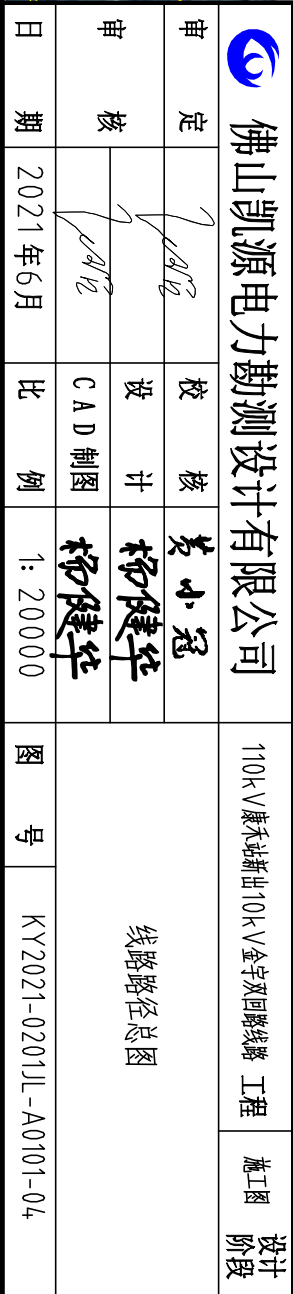 佛山凯源电力勘测设计有限公司
110kV康禾站新出10kV金字双回路线路 工程
施工图
设计
阶段
审定
校核
黄小冠
线路路径总图
审核
设计
杨健华
CAD制图
杨健华
日期
2021年6月
比例
1: 20000
图号
KY2021-0201JL-A0101-04